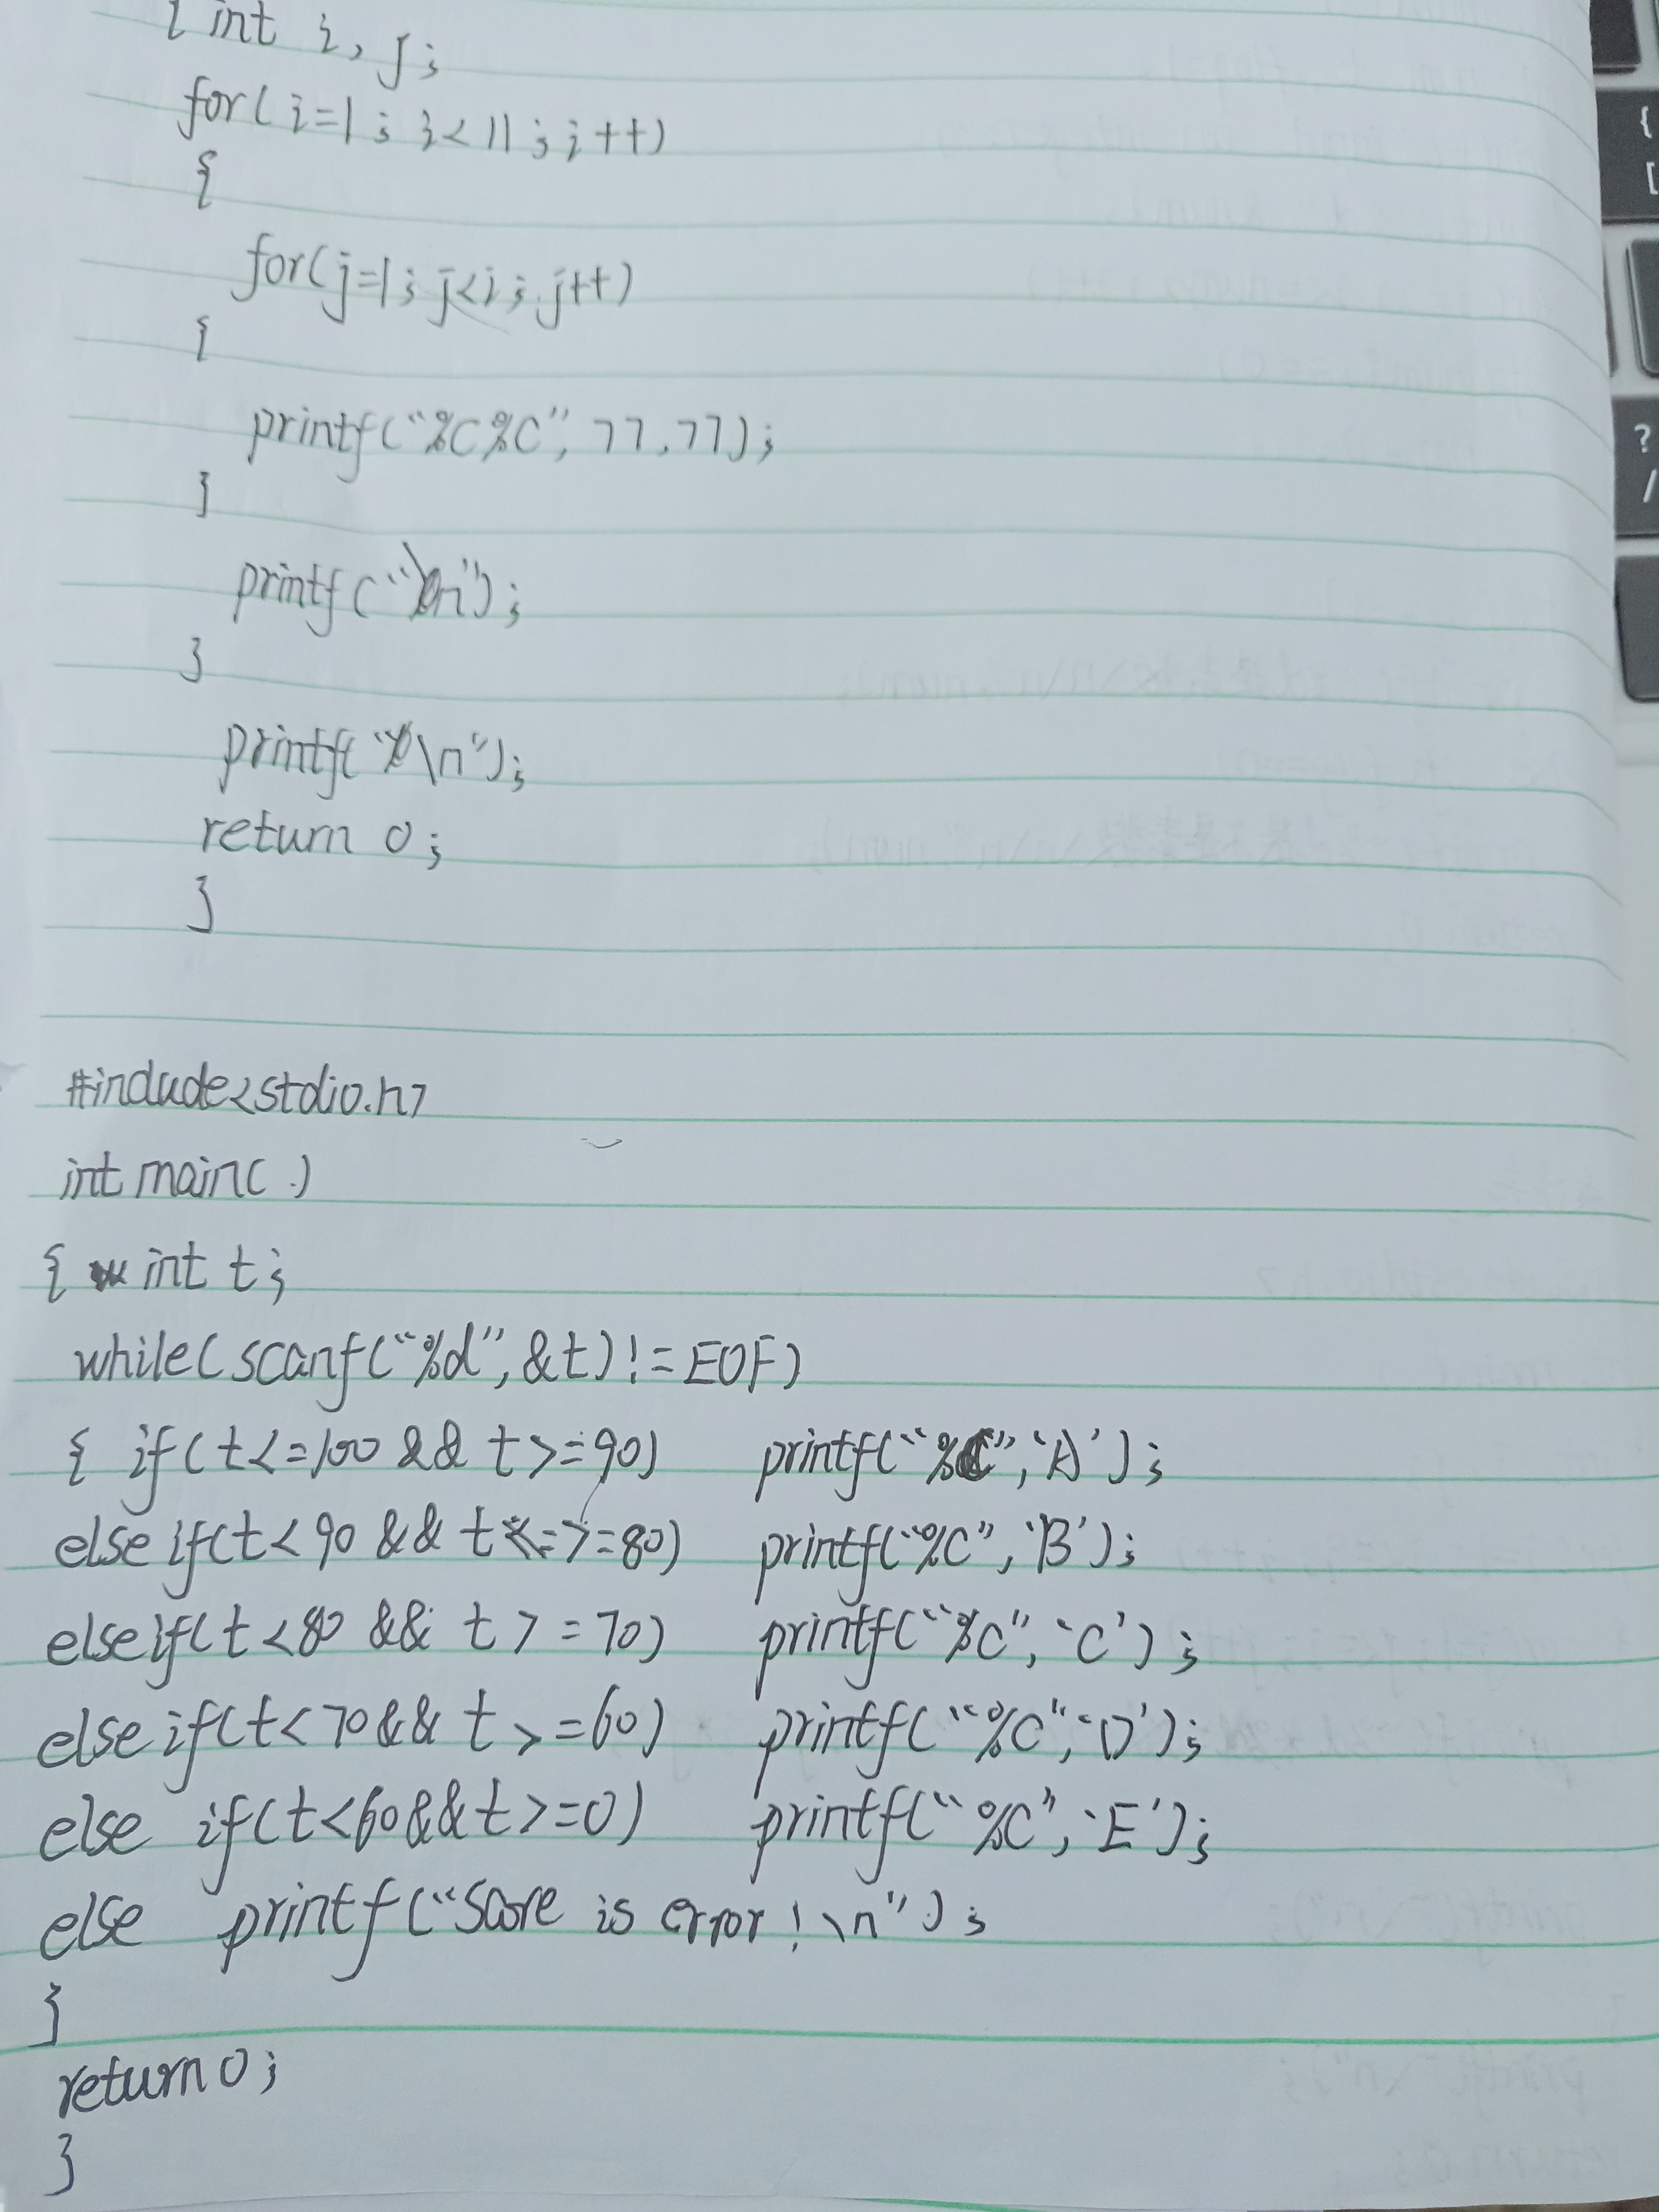 { int i, j;
for(i=1; i<11; i++)
{
for(j=1; j<i; j++)
{
printf("%c%c", 77,77);
}
printf("\n");
}
printf("\n");
return 0;
}
#include<stdio.h>
int main()
{ int t;
while(scanf("%d",&t)!=EOF)
{ if(t<=100 && t>=90) printf("%c",'A');
else if(t<90 && t>=80) printf("%c",'B');
else if(t<80 && t>=70) printf("%c",'C');
else if(t<70&& t>=60) printf("%c",'D');
else if(t<60&&t>=0) printf("%c",'E');
else printf("Score is error!\n");
}
return 0;
}
{
[
?
/